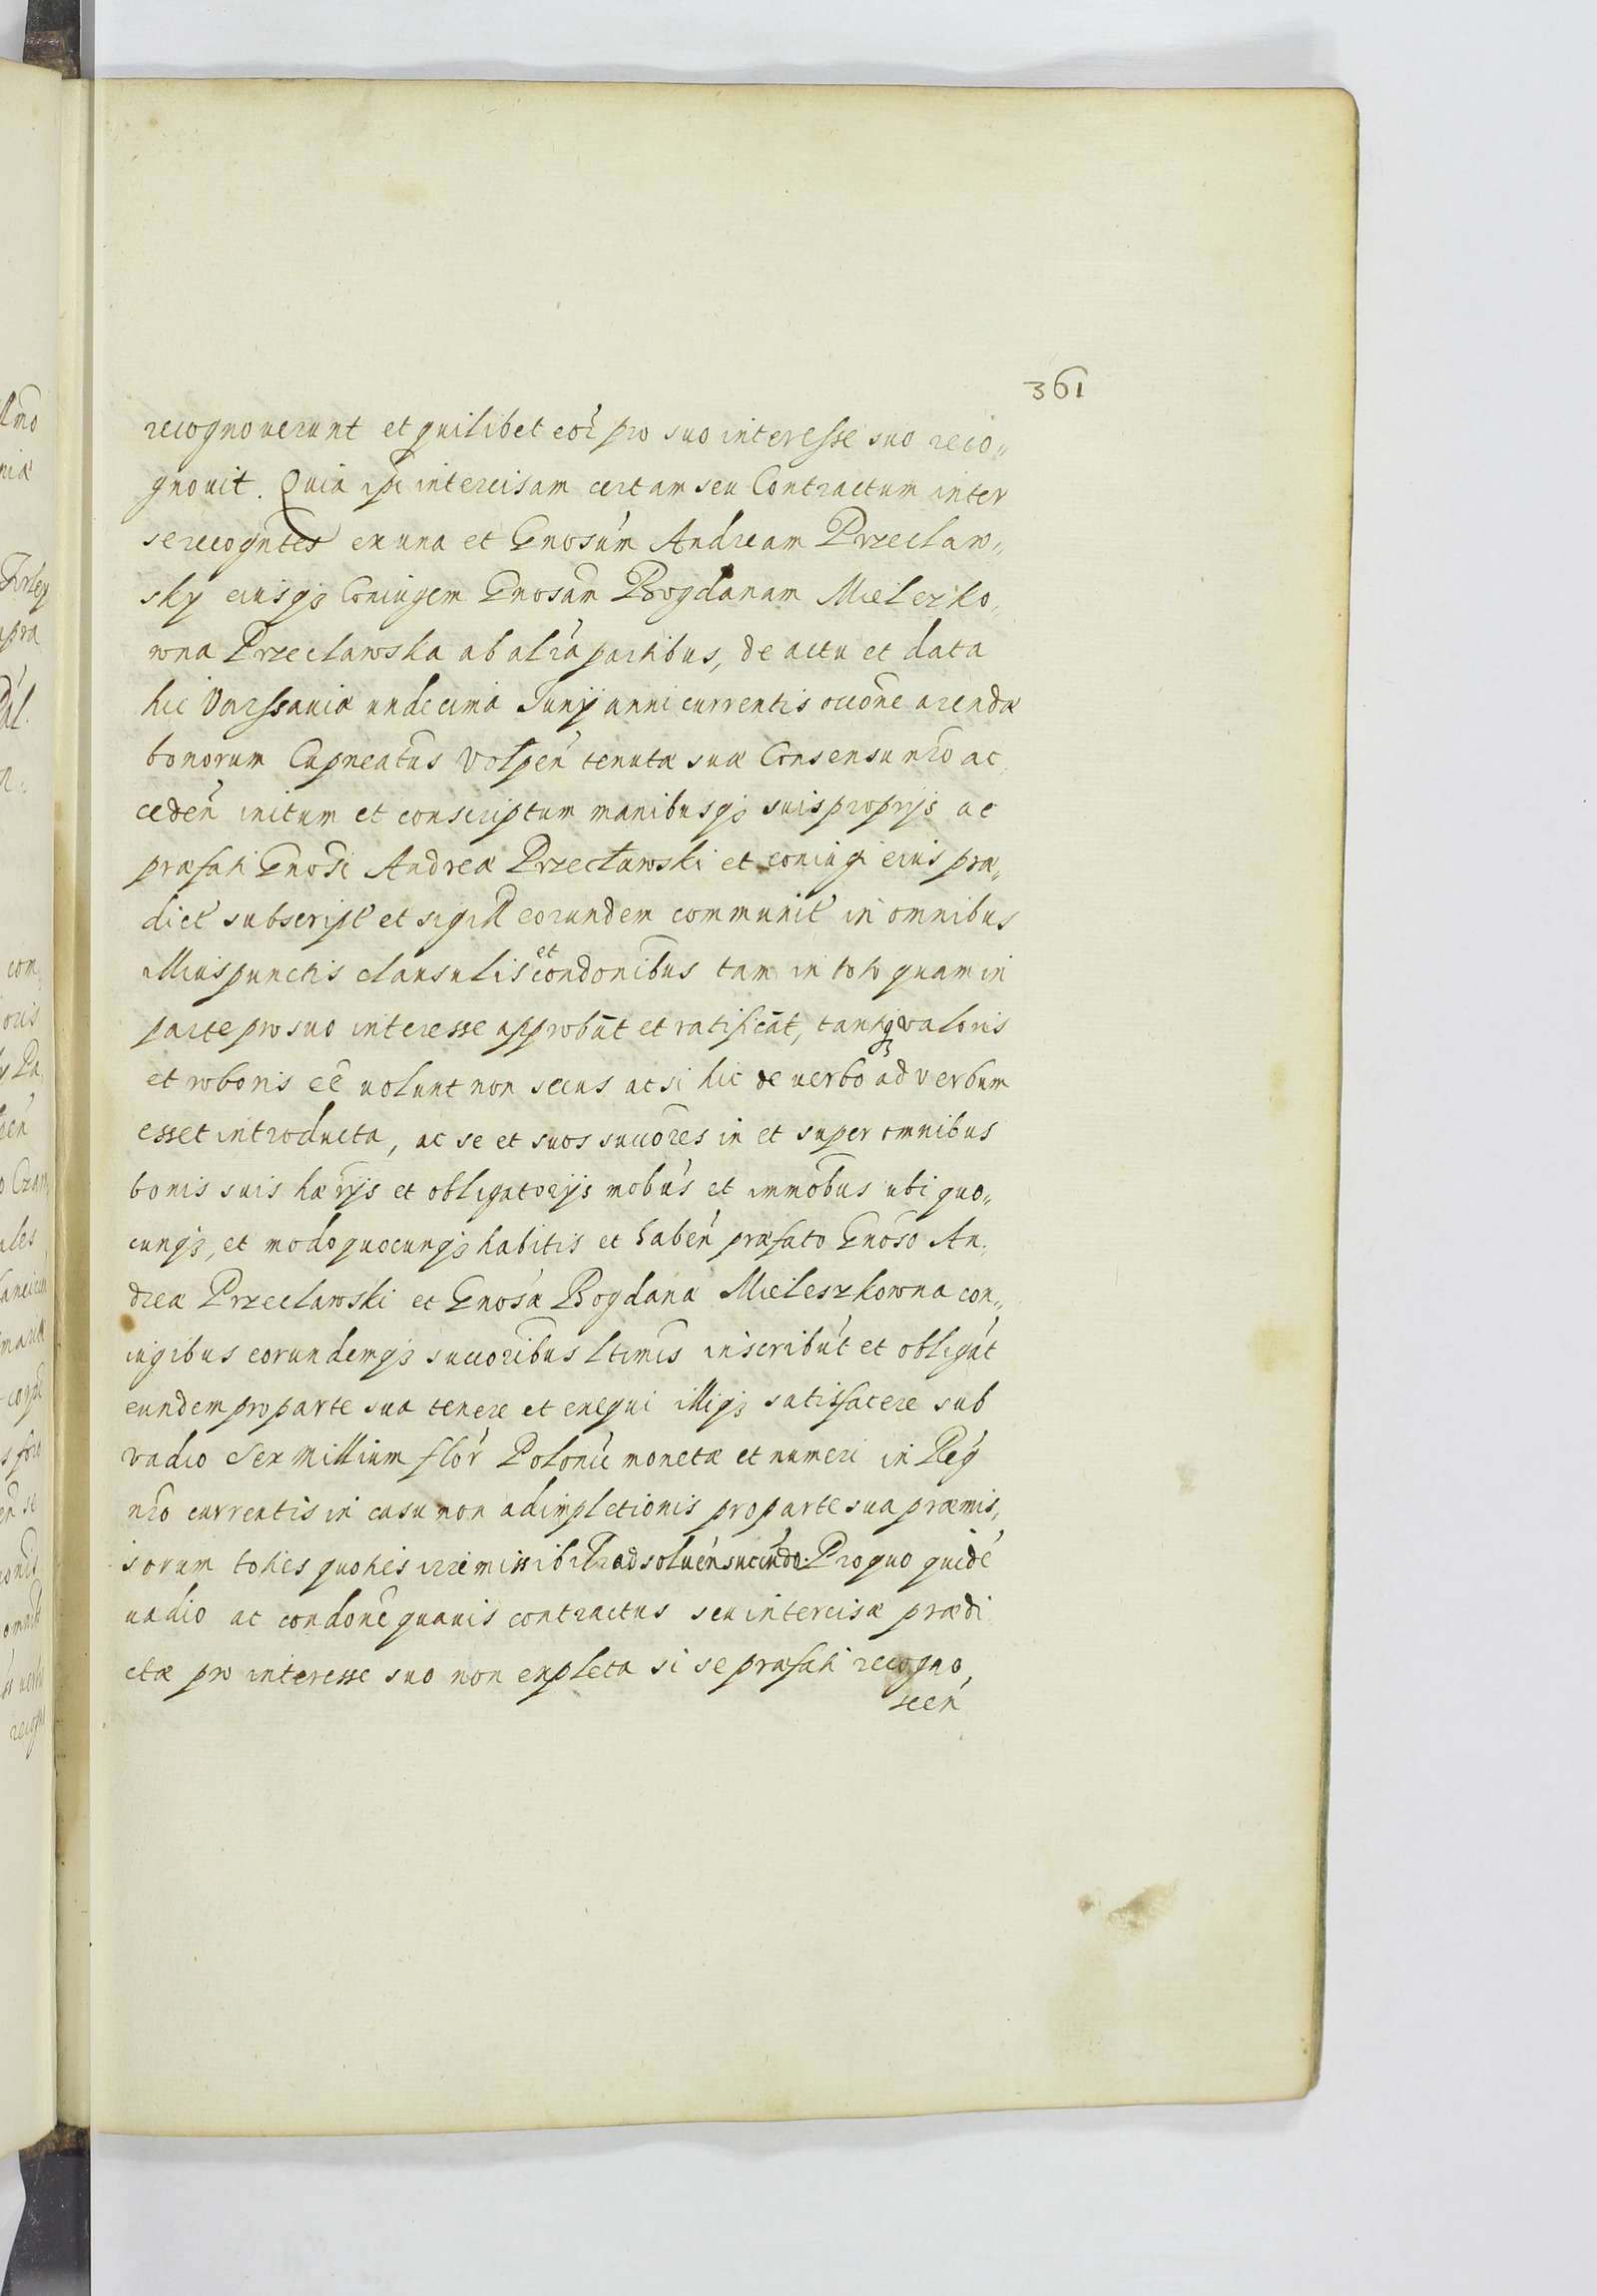 361
recognoverunt et quilibet eor̃ pro suo interesse suo reco„
gnouit. Quia ipsi intercisam certam seu Contractum inter
se recogntes ex una et Gnosũm Andream Przeclaw„
sky eiusq̃ Coniugem Gnosam Bogdanam Mielezko„
wna Przeclawska ab altã partibus, de actu et data
hic Varssauiæ undecima Junij anni currentis occõne arendæ
bonorum Capneatus Volpeñ tenutæ suæ Consensu nrõ ac„
cedeñ initum et conscriptum manibusq̃ suis proprijs ac
præfati Gnosi Andreæ Przecławski et coniugi eius præ„
dict subscript et sigill eorundem communit in omnibus
illius punctis clausulis et condonibus tam in toto quam in
parte pro suo interesse approbãt et ratificãt, tantiq̃ valoris
et roboris eẽ uolunt non secus ac si hic de uerbo ad verbum
esset introducta, ac se et suos succores in et super omnibus
bonis suis hærijs et obligatorijs mobũs et immobus ubi quo„
cunq̃, et modo quocunq̃ habitis et habeñ præfato Gnoso An„
dreæ Przeclawski et Gnosæ Bogdana Mieleszkowna con„
iugibus eorundemq̃ succoribus ltimis inscribũt et obligãt
eundem pro parte sua tenere et exequi illiq̃ satisfacere sub
vadio Sex Millium flor̃ Polonic monetæ et numeri in Reg̃
nrõ currentis in casu non adimpletionis pro parte sua præmis„
sorum toties quoties irremissibilr̃ adsolueñ succũndo. Pro quo quidẽ
uadio ac condone quauis contractus seu intercisæ prædi
ctæ pro interesse suo non expleta si se præfati recogno„
sceñ